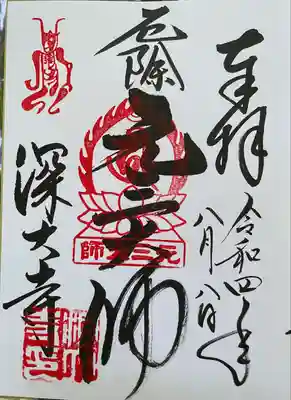 奉拝
令和四年
八月八日
厄除
元三大師
元三大師
深大寺